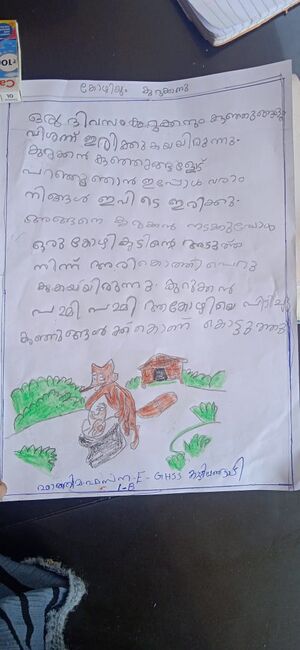 കോഴിയും കുറുക്കനും
ഒരു ദിവസം കുറുക്കനും കുഞ്ഞുങ്ങളും
വിശന്ന് ഇരിക്കുകയയിരുന്നു.
കുറുക്കൻ കുഞ്ഞുങ്ങളോട്
പറഞ്ഞു ഞാൻ ഇപ്പോൾ വരാം
നിങ്ങൾ ഇവിടെ ഇരിക്കു.
അങ്ങനെ കുറുക്കൻ നടക്കുമ്പോൾ
ഒരു കോഴി കൂടിന്റെ അടുത്ത്
നിന്ന് അരി കൊത്തി പെറു
ക്കുകയയിരുന്നു. കുറുക്കൻ
പമ്മി പമ്മി കോഴിയെ പിടിച്ചു
കുഞ്ഞുങ്ങൾക്ക് കൊണ്ട് കൊടുത്തു
E - GHSS
1-B